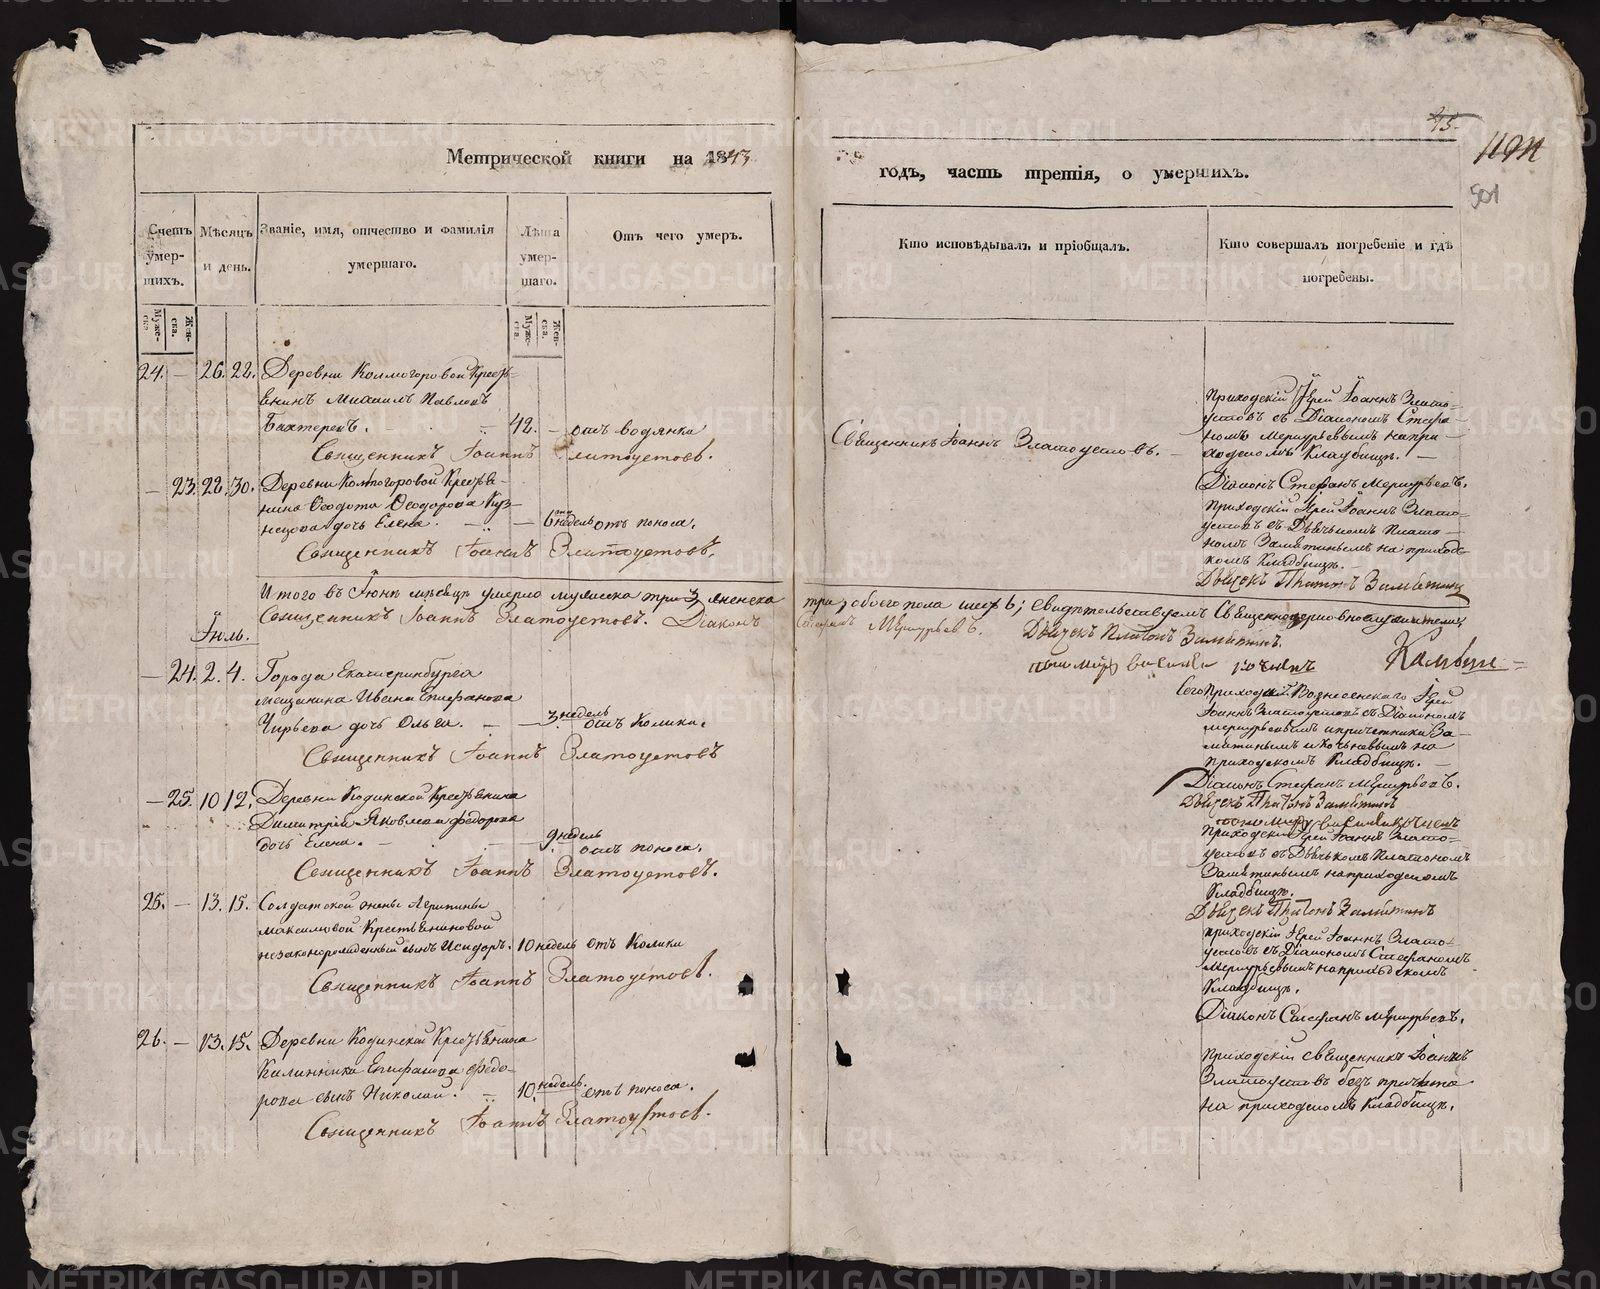 75.
501
Метрической книги на 1843
годъ, часть третія, о умершихъ.
Счетъ умер-шихъ.
Мѣсяцъ и день.
Званіе, имя, отчество и фамилія умершаго.
Лѣта умер-шаго.
Отъ чего умеръ.
Кто исповѣдывалъ и пріобщалъ.
Кто совершалъ погребеніе и гдѣ погребены.
Муже-ска.
Жен-ска.
Муже-ска.
Жен-ска.
24. — 26. 22. Деревни Колмогоровой Кресть-
янинъ Михаилъ Павловъ
Бахтеревъ. 42. — отъ водянки
Священникъ Іоаннъ Златоустовъ.
Священникъ Іоаннъ Златоустовъ.
Приходскій Іерей Іоаннъ Злато-
устовъ съ Діакономъ Стефа-
номъ Меркурьевымъ на при-
ходскомъ Кладбищѣ.
Діаконъ Стефанъ Меркурьевъ.
— 23. 28. 30. Деревни Колмогоровой Крестья-
нина Ѳедота Ѳеодорова Куз-
нецова дочь Елена. — 6 недель отъ поноса.
Священникъ Іоаннъ Златоустовъ.
Приходскій Іерей Іоаннъ Злато-
устовъ съ Дьячкомъ Плато-
номъ Замятинымъ на приход-
комъ Кладбищѣ.
Дьячекъ Платонъ Замятинъ
Итого въ Іюнѣ мѣсяцѣ умерло мужеска три 3, женска
три, обоего пола шесть 6; свидѣтельствуемъ Священноцерковнослужители
Священникъ Іоаннъ Златоустовъ. Діаконъ
Стефанъ Меркурьевъ. Дьячекъ Платонъ Замятинъ.
пономарь василий
Іюль.
— 24. 2. 4. Города Екатеринбурга
мещанина Ивана Епифанова
Чирьева дочь Ольга. — 3 недель отъ Колики.
Священникъ Іоаннъ Златоустовъ
Сего Прихода Вознесенскаго Іерей
Іоаннъ Златоустовъ съ Діакономъ
Меркурьевымъ и причетники За-
мятинымъ и на
приходскомъ Кладбищѣ.
Діаконъ Стефанъ Меркурьевъ.
Дьячекъ Платонъ Замятинъ
— 25. 10 12. Деревни Кодинской Крестьянина
Димитрія Яковлева Федорова
дочь Елена. — 9 недель отъ поноса.
Священникъ Іоаннъ Златоустовъ.
Приходскій Іерей Іоаннъ Злато-
устовъ съ Дьячкомъ Платономъ
Замятинымъ на приходскомъ
Кладбищѣ.
Дьячекъ Платонъ Замятинъ
25. — 13. 15. Солдатской жены Агрипины
Максимовой Крестьяниновой
незаконорожденный сынъ Исидоръ. 10 недель отъ Колики
Священникъ Іоаннъ Златоустовъ.
приходскій Іерей Іоаннъ Злато-
устовъ съ Діакономъ Стефаномъ
Меркурьевымъ на приходскомъ
Кладбищѣ.
Діаконъ Стефанъ Меркурьевъ.
26. — 13. 15. Деревни Кодинской Крестьянина
Калинника Епифанова Федо-
рова сынъ Николай. 10. недель. отъ поноса.
Священникъ Іоаннъ Златоустовъ.
Приходскій священникъ Іоаннъ
Златоустовъ безъ причта
на приходскомъ Кладбищѣ.
METRIKI.GASO-URAL.RU